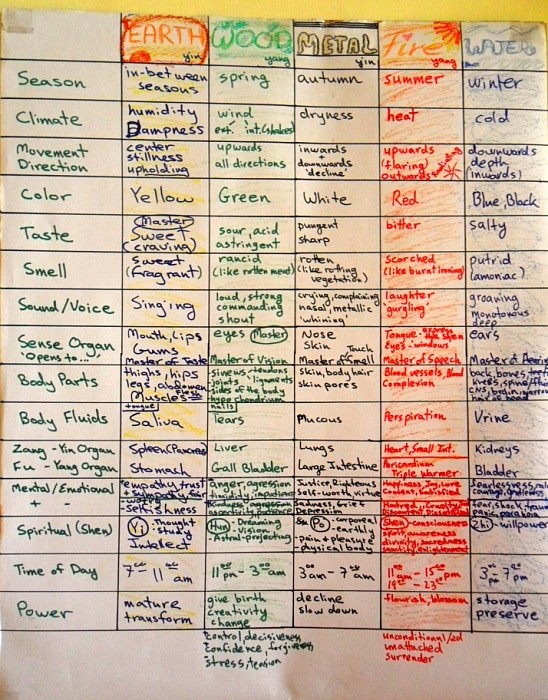 EARTH WOOD METAL Fire WATER
yin yang yin yang
Season in-between seasons spring autumn summer winter
Climate humidity Dampness wind ext. int. (shakes) dryness heat cold
Movement Direction center stillness upholding upwards all directions inwards downwards 'decline' upwards (flaring) outwards downwards depth (inwards)
Color Yellow Green White Red Blue, Black
Taste (Master) Sweet (craving) sour, acid astringent pungent sharp bitter salty
Smell sweet (fragrant) rancid (like rotten meat) rotten (like rotting vegetation) Scorched (like burnt ironing) putrid (amoniac)
Sound/Voice Singing loud, strong commanding shout crying, complaining nasal, metallic 'whining' laughter gurgling groaning monotonous deep
Sense Organ 'Opens to...' Mouth, Lips Gums Master of Taste eyes (Master) Master of Vision Nose Skin Touch Master of Smell Tongue - Eyes - windows Master of Speech ears Master of
Body Parts thighs, hips legs, abdomen Muscles flesh tongue sinews, tendons joints ligaments sides of the body hypochondrium nails skin, body hair skin pores Blood vessels, Blood Complexion back, bones, teeth
Body Fluids Saliva Tears Mucous Perspiration Urine
Zang - Yin Organ Spleen (Pancreas) Liver Lungs Heart, Small Int. Kidneys
Fu - Yang Organ Stomach Gall Bladder Large Intestine Pericardium Triple Warmer Bladder
Mental/Emotional + - empathy, trust + sympathy worry Selfishness anger, agression timidity, impatience kindness Justice, Righteous Self-worth, virtue Sadness, Grief Happiness, Joy, Love Content, Satisfied Hatred, Cruelty fearlessness courage
Spiritual (Shen) Yi - thought - study Intellect Hun - Dreaming Vision - Astral-projecting Po - corporeal - earthly - pain + pleasure - physical body Shen - consciousness spirit, awareness divinity, sacredness sanctity, enlightenment Zhi - willpower
Time of Day 7 - 11 am 11 pm - 3 am 3 am - 7 am 11 am - 15 pm 19 - 23 pm 3 pm 7 pm
Power mature transform give birth creativity change decline slow down flourish, blossom storage preserve
control, decisiveness unconditional/ed
confidence, forgiveness unattached
stress, tension surrender